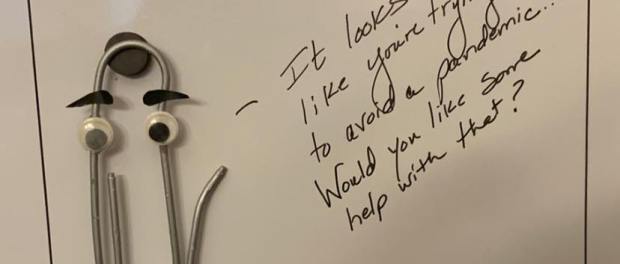 It looks
like you're tryin
to avoid a pandemic..
Would you like some
help with that?